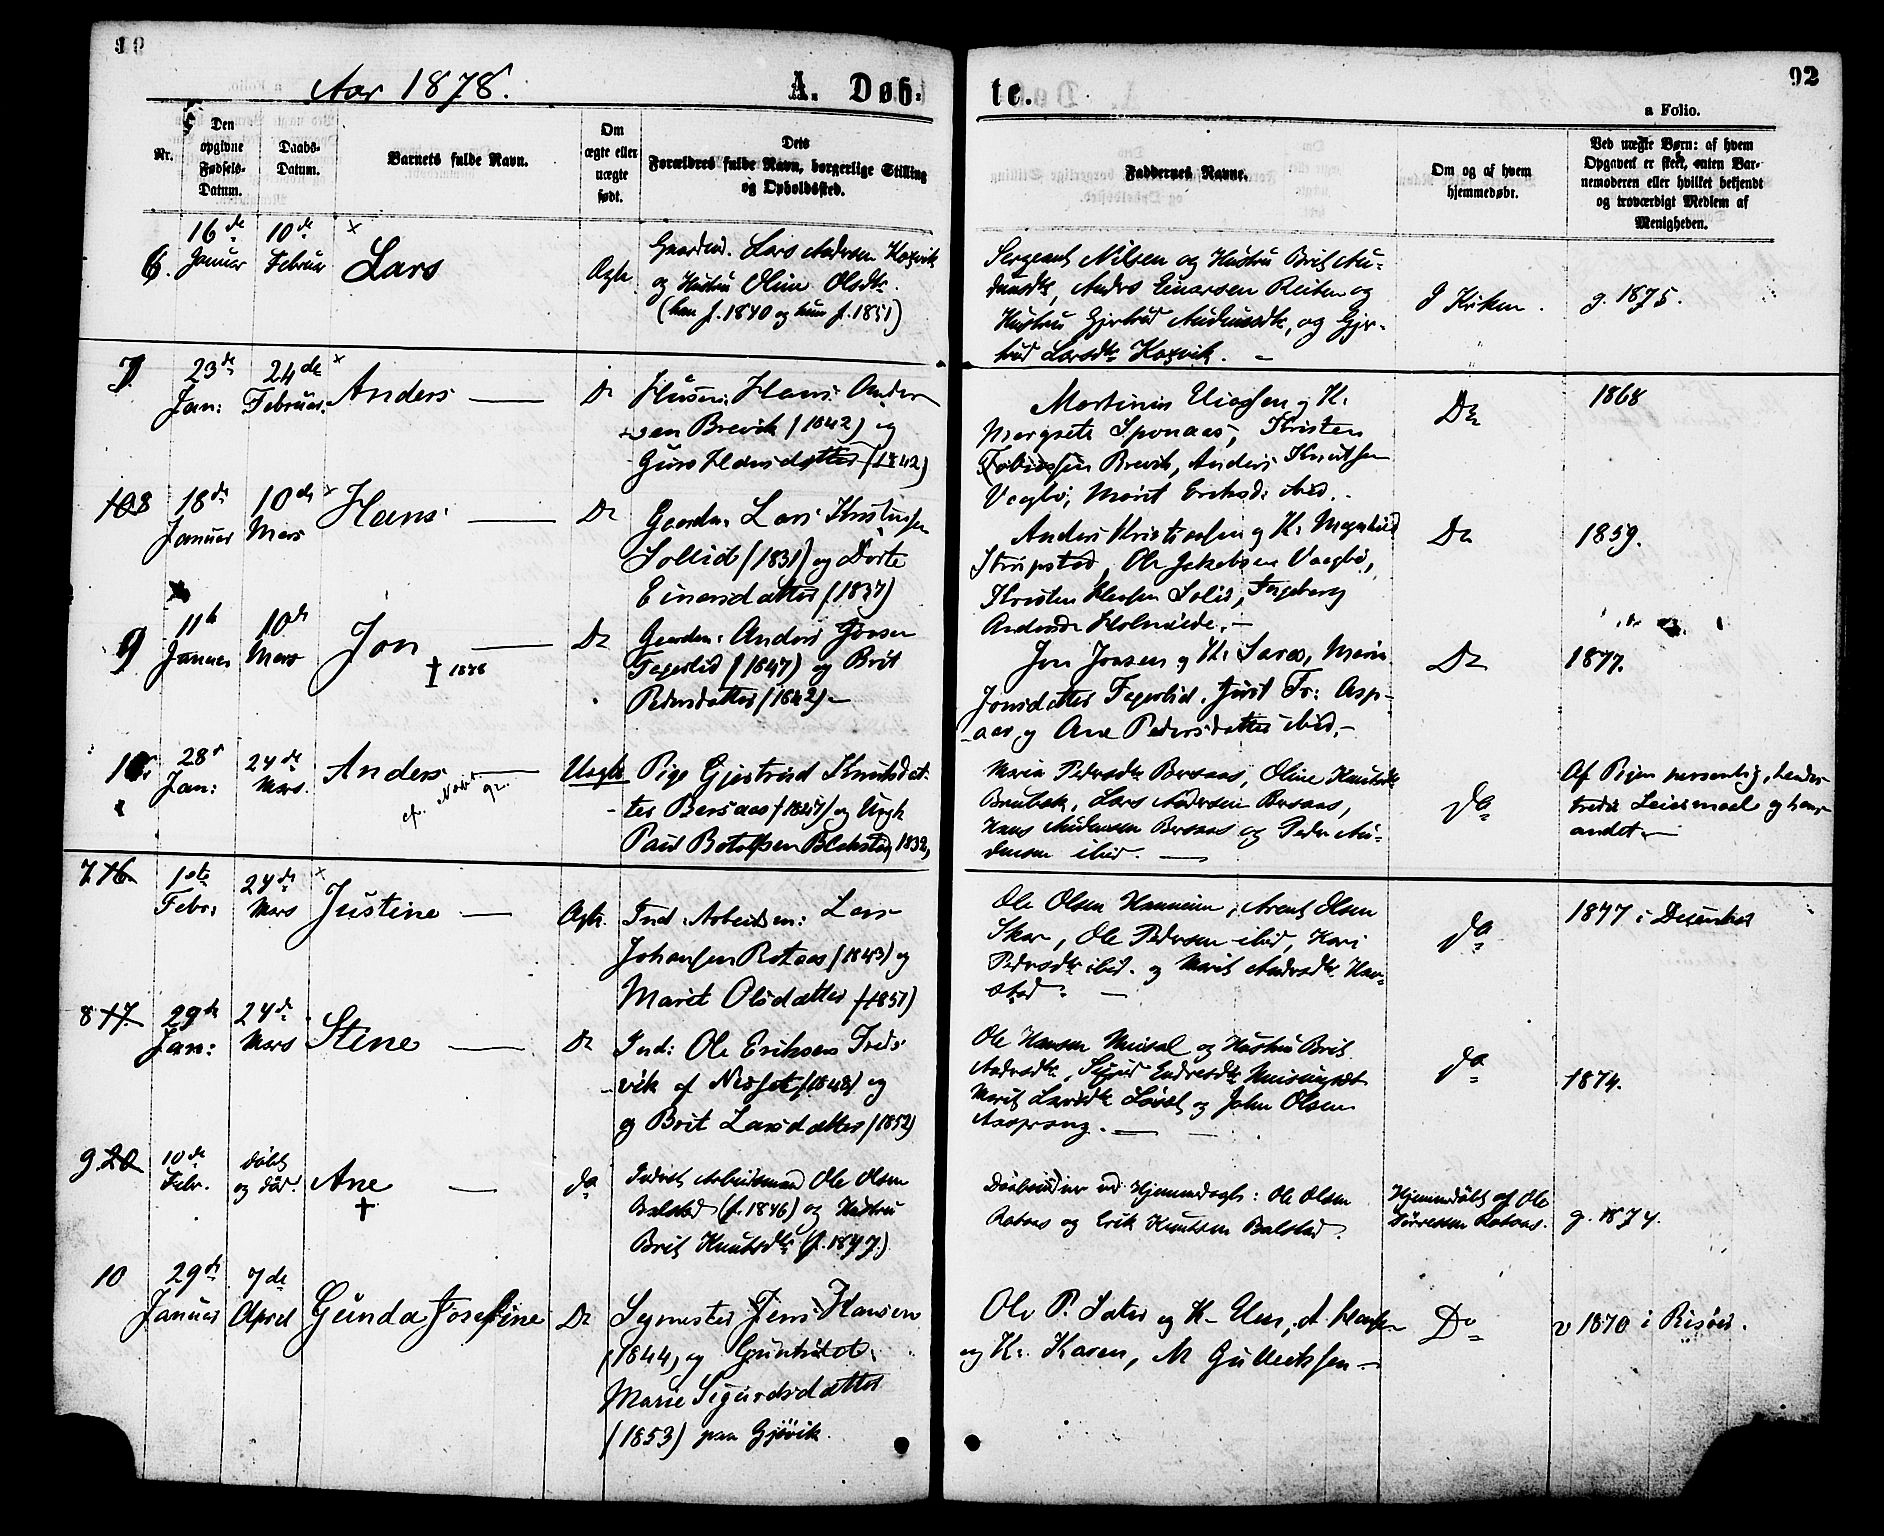 Aar 1878.
A. Døb-
te.
92
a Folio.
Nr.
Den
opgivne
Fødsels-
Datum.
Daabs-
Datum.
Barnets fulde Navn.
Om
ægte eller
uægte
født.
Dets
Forældres fulde Navn, borgerlige Stilling
og Opholdssted.
Faddernes Navne.
Om og af hvem
hjemmedøbt.
Ved uægte Børn: af hvem
Opgaven er skeet, enten Bar-
nemoderen eller hvilket bekjendt
og troværdigt Medlem af
Menigheden.
6.
16de
Januar
10de
Februar
Lars
Ægte
Gaardmd. Lars Andersen Koxvik
og Hustru Oline Olsdtr.
(han f. 1840 og hun f. 1851)
Sergeant Nilsen og Hustru Brit Au-
dunsdtr, Anders Einarsen Reiten og
Hustru Gjertrud Audunsdtr, og Gjer-
trud Larsdtr Koxvik. –
I Kirken.
g. 1875.
7
23de
Jan:
24de
Februar.
Anders
Do
Husm: Hans Ander
sen Brevik (1842) og
Guro Hansdatter (1842)
Martinus Eliassen og H.
Margrete Sponaas, Kristen
Tobiassen Brevik, Anders Knutsen
Vaagbø, Marit Eriksd: ibid. –
Do
1868
108
18de
Januar
10de
Mars
Hans
Do
Gaardm: Lars Kristensen
Sollid (1831) og Dorte
Einarsdatter (1837)
Anders Kristiansen og H.
Stripstad, Ole Jakobsen Vaagbø,
Kristen Solid, Ingeborg
Andersdr Holmeide. –
Do
1859.
9
11te
Januar
10de
Mars
Jon
† 1878
Do
Gaardm: Anders Jonsen
Fagerlid (1847) og Brit
Pedersdatter (1842) –
Jon Jonsen og H. Sara, Marie
Jonsdatter Fagerlid, Just Fr: Asp-
aas og Ane Pedersdatter ibid. –
Do
1877.
10
28de
Jan:
24de
Mars.
Anders
Uægte
Pige Gjertrud Knutsdat-
ter Bersaas (1857) og Ungk
Paul Botolfsen Blekstad, 1832,
Maria Pedersdtr Bersaas, Oline Knutsdtr
Brubak, Lars Andersen Bersaas,
Hans Audunsen Bersaas og Peder Au-
dunsen ibid. –
Do
Af Pigen personlig, hendes
tredie Leiermaal og hans
andet –
7 16
1ste
Febr:
24de
Mars
Justine
Ægte
Ind: Arbeidsm: Lars
Johansen Rotaas (1843) og
Marit Olsdatter (1851)
Ole Olsen Hanneim, Arent Olsen
Skar, Ole Pedersen ibid, Kari
Pedersdtr ibid. og Marit Andersdtr Har-
stad. –
Do
1877 i December
8 17
29de
Jan:
24de
Mars
Stine
Do
Ind: Ole Eriksen Freds-
vik af Nesset (1848) og
og Brit Larsdatter (1852)
Ole Hansen Meisal og Hustru Brit
Andersdtr, Sigrid Endresdtr
Marit Larsdtr Løset og John Olsen
Aasprang. –
Do
1874.
9 20
10de
Febr.
døbt
og død.
Ane
†
Do
Inderst Arbeidsmand Ole Olsen
Balstad (f. 1846) og Hustru
Brit Knutsdtr (f. 1847.)
Daabsvidner ved Hjemmedaab: Ole Olsen
Rotaas og Erik Knutsen Balstad.
Hjemmedøbt af Ole
Torresen Rotaas.
g. 1874.
10
29de
Januar
7de
April
Gunda Josefine
Do
Symester Jens Hansen
(1844) og
Marie Sigurdsdatter
(1853) paa Gjøvik.
Ole P. Sæter og H. Elen,
og H. Karen, M. Gulleiksen –
Do
v 1870 i Risør.